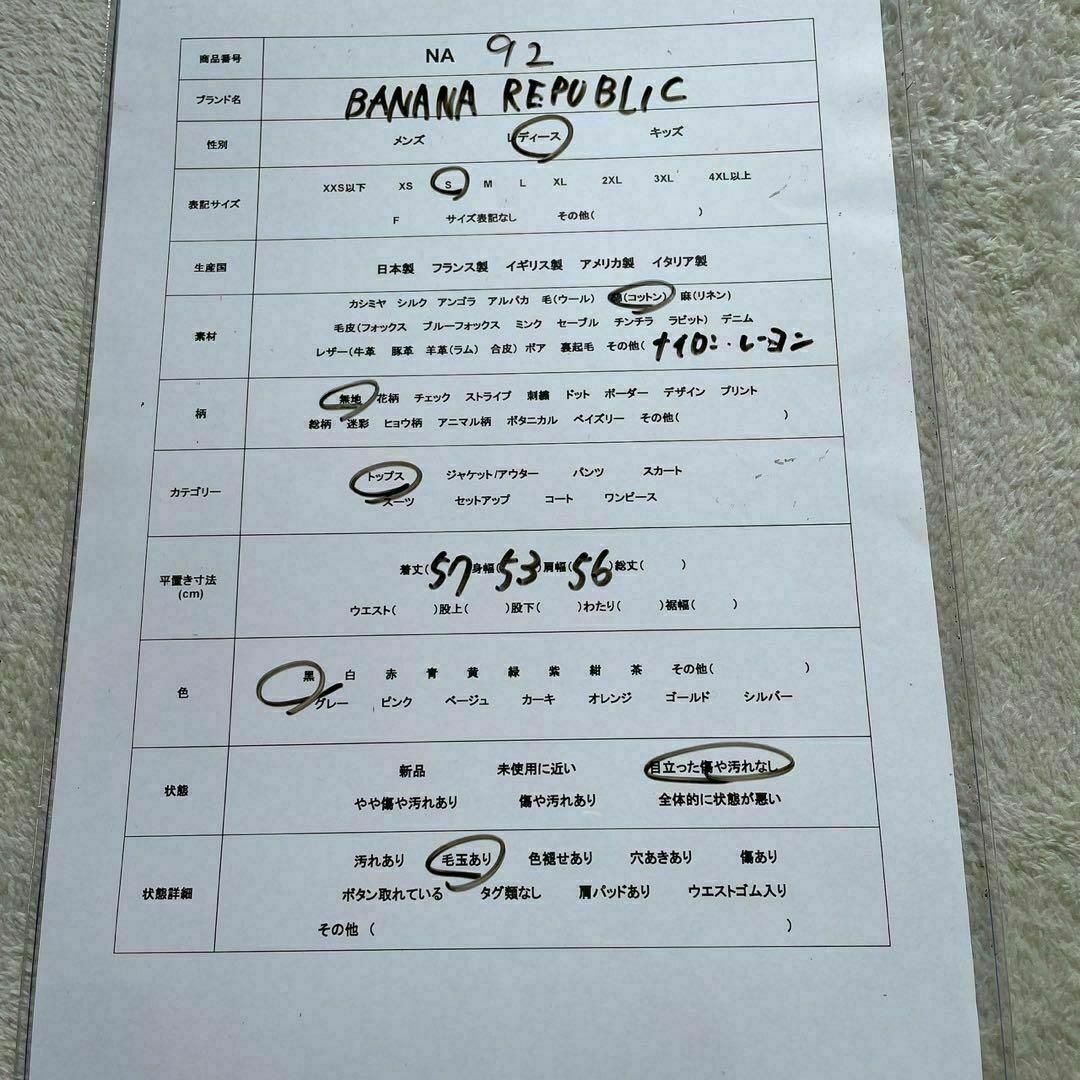 商品番号 NA 92
ブランド名 BANANA REPUBLIC
性別 メンズ レディース キッズ
表記サイズ
XXS以下 XS S M L XL 2XL 3XL 4XL以上
F サイズ表記なし その他( )
生産国 日本製 フランス製 イギリス製 アメリカ製 イタリア製
素材
カシミヤ シルク アンゴラ アルパカ 毛(ウール) 綿(コットン) 麻(リネン)
毛皮(フォックス ブルーフォックス ミンク セーブル チンチラ ラビット) デニム
レザー(牛革 豚革 羊革(ラム) 合皮) ボア 裏起毛 その他( ナイロン・レーヨン
柄
無地 花柄 チェック ストライプ 刺繍 ドット ボーダー デザイン プリント
総柄 迷彩 ヒョウ柄 アニマル柄 ボタニカル ペイズリー その他( )
カテゴリー
トップス ジャケット/アウター パンツ スカート
スーツ セットアップ コート ワンピース
平置き寸法
(cm)
着丈( 57 身幅( 53 )肩幅( 56 )総丈( )
ウエスト( )股上( )股下( )わたり( )裾幅( )
色
黒 白 赤 青 黄 緑 紫 紺 茶 その他( )
グレー ピンク ベージュ カーキ オレンジ ゴールド シルバー
状態
新品 未使用に近い 目立った傷や汚れなし
やや傷や汚れあり 傷や汚れあり 全体的に状態が悪い
状態詳細
汚れあり 毛玉あり 色褪せあり 穴あきあり 傷あり
ボタン取れている タグ類なし 肩パッドあり ウエストゴム入り
その他 ( )